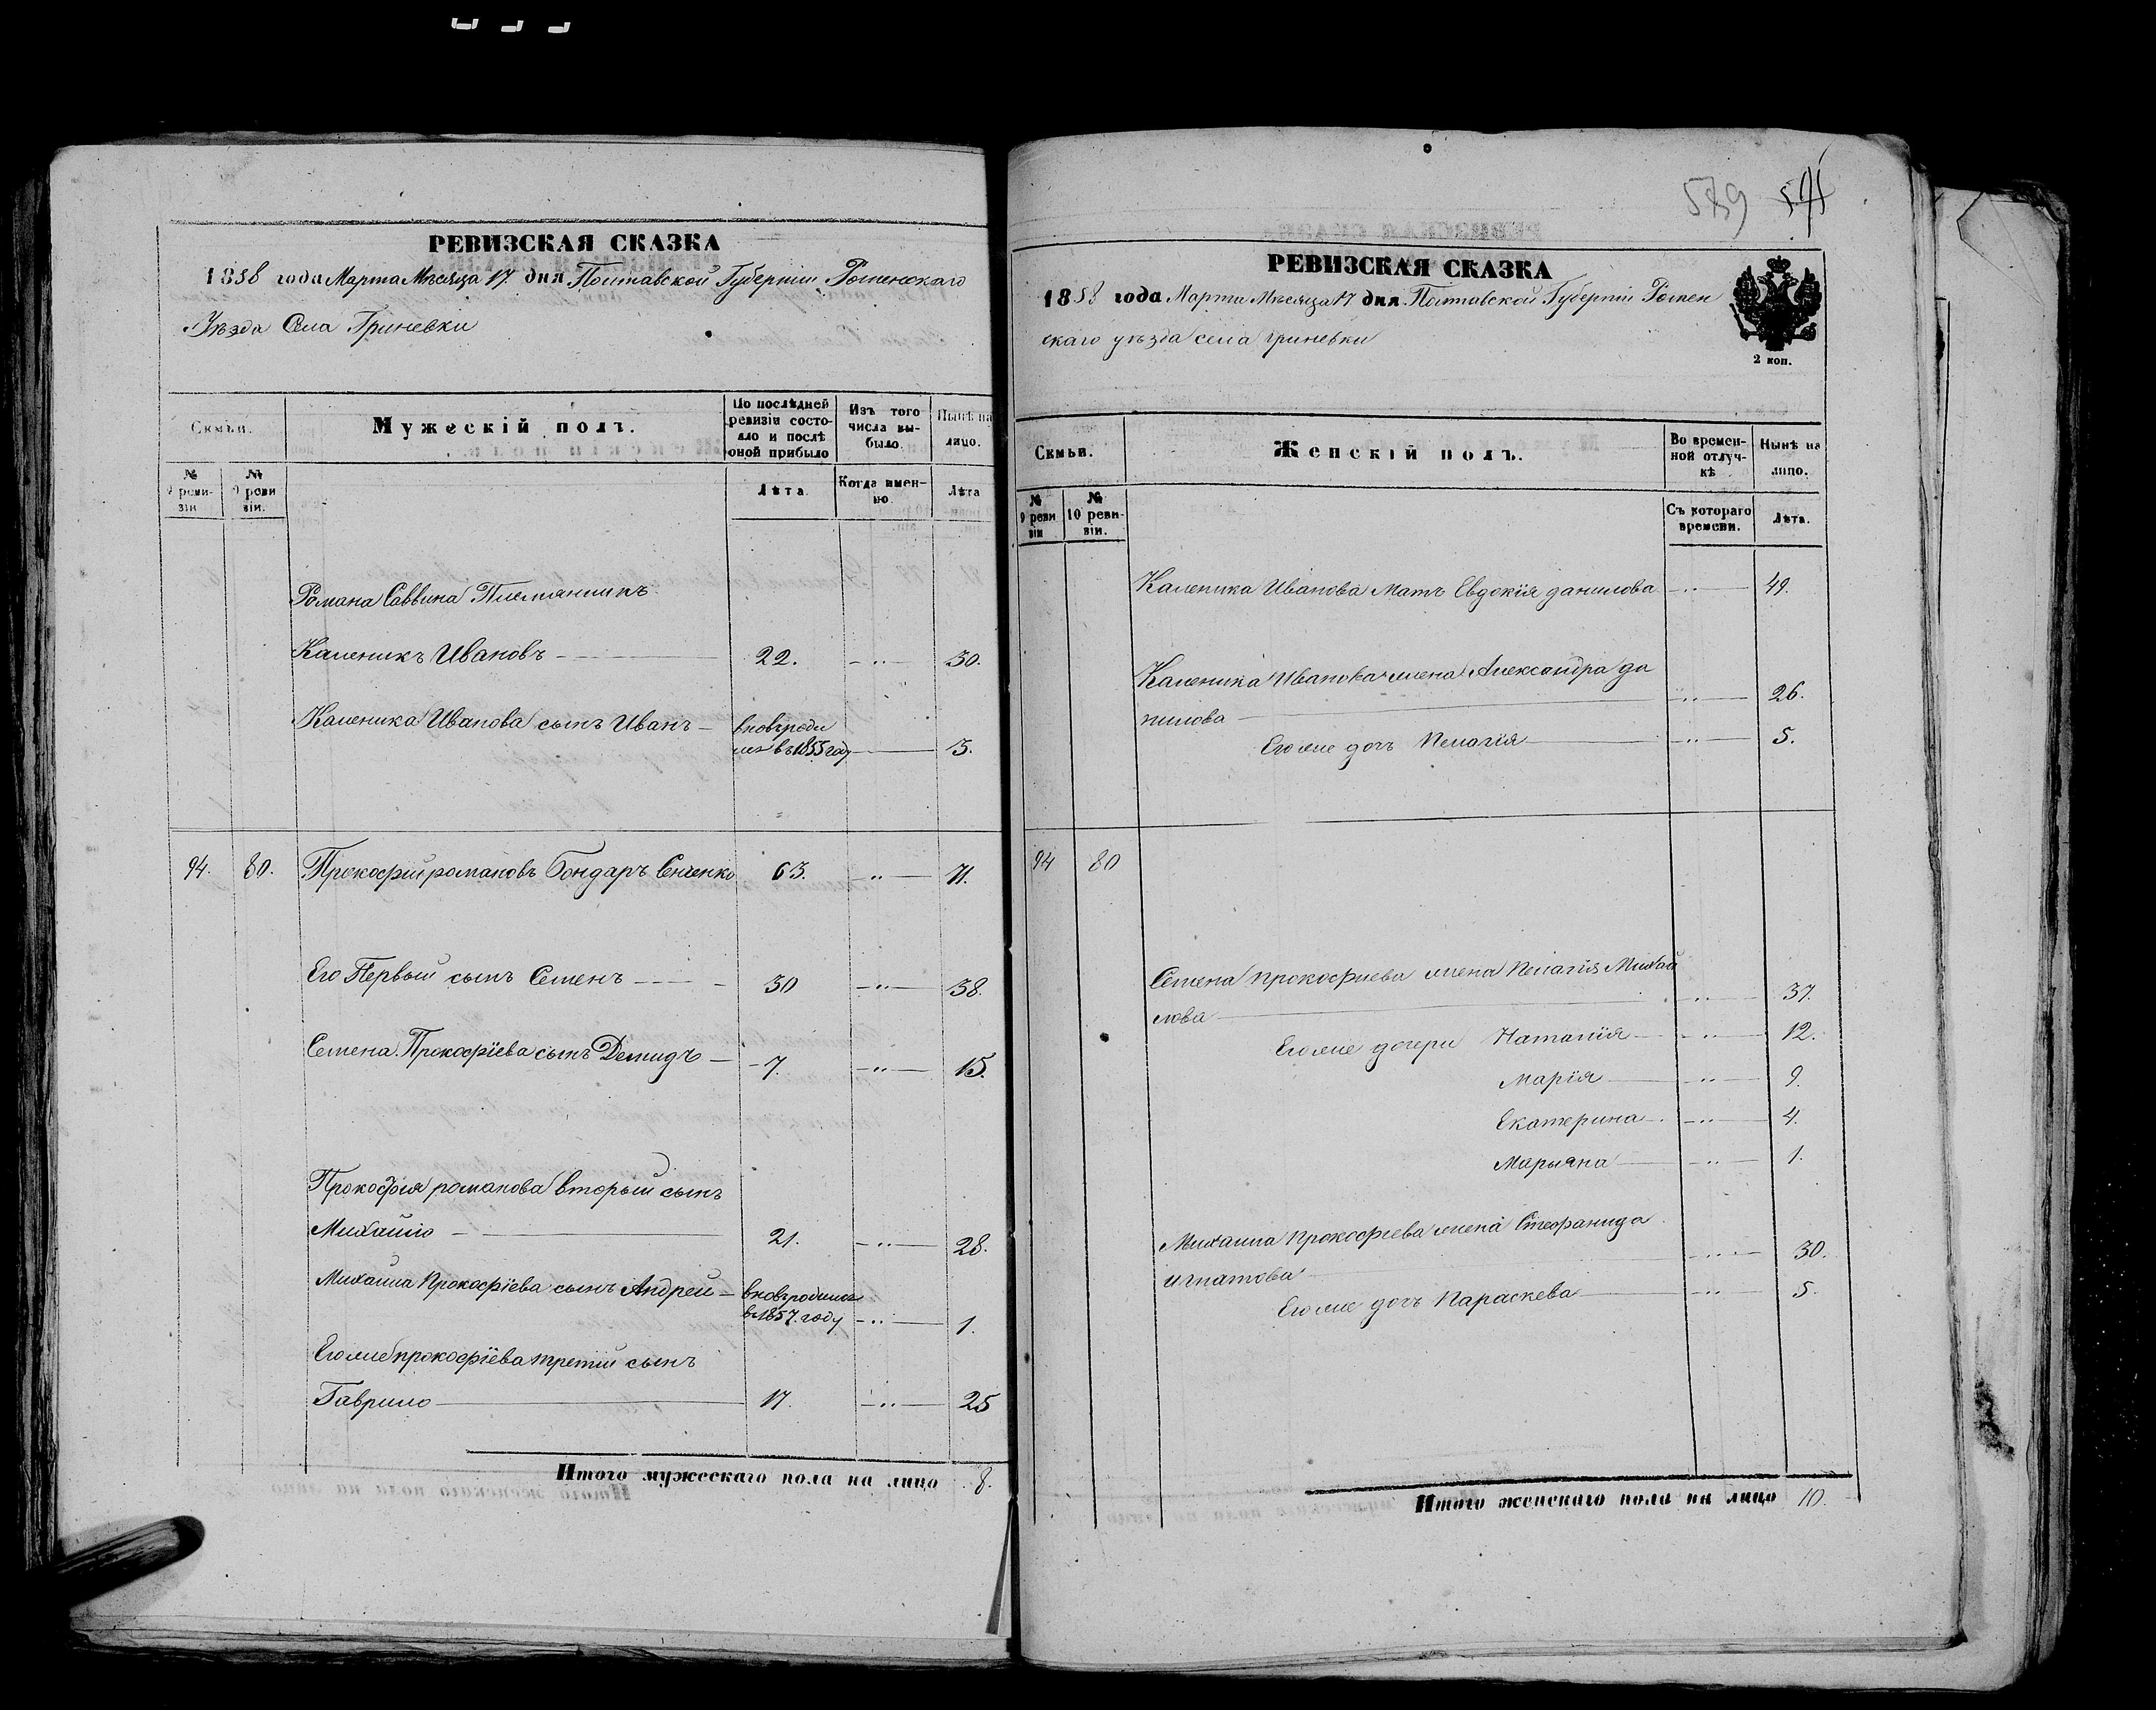 РЕВИЗСКАЯ СКАЗКА
1858 года Марта Мѣсяца 17 дня Полтавской Губерніи Роменскаго
Уѣзда Села Гриневки
Семьи.
Мужескій полъ.
По послѣдней ревизіи состояло и послѣ оной прибыло
Изъ того числа выбыло.
Нынѣ на лицо.
№ 9 ревизіи
№ ревизіи.
Лѣта.
Когда именно.
Лѣта
Романа Саввина Племянникъ
Каленикъ Ивановъ 22. 30.
Каленика Иванова сынъ Иванъ вновь родился въ 1855 году 3.
94. 80. Прокофій романовъ Бондарь 63. 71.
Его Первый сынъ Семенъ 30 38.
Семена Прокофіева сынъ Демидъ 7. 15.
Прокофія романова вторый сынъ
Михайло 21. 28.
Михаила Прокофіева сынъ Андрей вновь родился в 1857. году 1.
Его же прокофіева третій сынъ
Гаврило 17. 25
Итого мужескаго пола на лицо 8.
579
РЕВИЗСКАЯ СКАЗКА
1858 года Марта Мѣсяца 17 дня Полтавской Губерніи Ромен
скаго уѣзда села гриневки
2 коп.
Семьи.
Женскій полъ.
Во временной отлучкѣ
Нынѣ на лицо.
№ 9 ревизіи
№ 10 ревизіи.
Съ котораго времени.
Лѣта.
Каленика Иванова Мать Евдокія данилова 49.
Каленика Иванова жена Александра да
нилова 26.
Его же дочь Пелагія 5.
94 80
Семена прокофиева жена Пелагія Михай
лова 37.
Его же дочери Наталія 12.
Марія 9.
Екатерина 4.
Марьяна 1.
Михаила Прокофіева жена Стефанида
игнатова 30.
Его же дочь Параскева 5.
Итого женскаго пола на лицо 10.